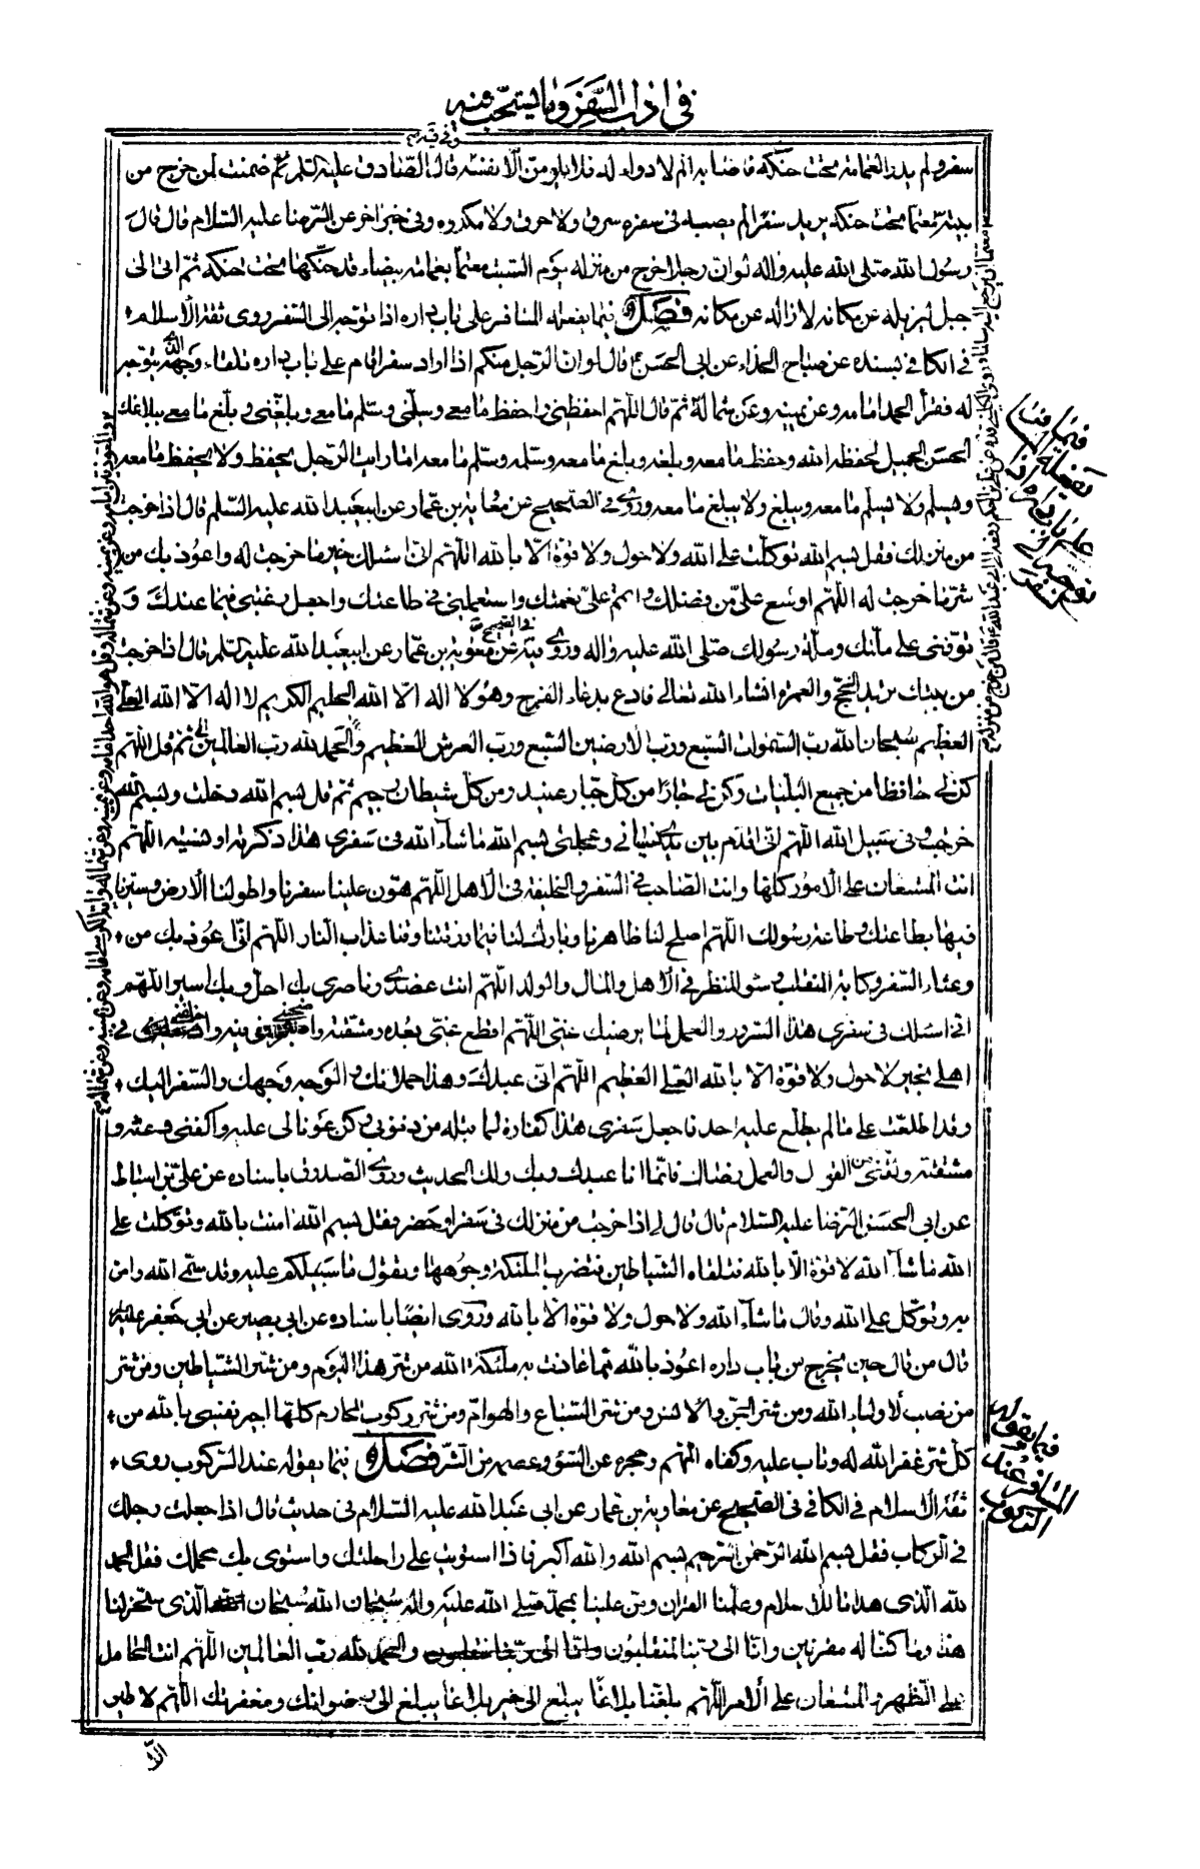 في اداب السفر وما يستحب منه
سفر ولم يدر العمامة تحت حنكه فاصابه الم لا دواء له فلا يلومن الا نفسه قال الصادق عليه السلام ضمنت لمن خرج من
بيته معتما تحت حنكه يريد سفرا لم يصبه في سفره سرق ولا حرق ولا مكروه وفي خبر اخر عن الرضا عليه السلام قال قال
رسول الله صلى الله عليه واله لو ان رجلا خرج من منزله يوم السبت معتما بعمامة بيضاء قد حنكها تحت حنكه ثم اتى الى
جبل ليزيله عن مكانه لازاله عن مكانه فصل فيما يفعله المسافر على باب داره اذا توجه الى السفر روى ثقة الاسلام
في الكافي بسنده عن صباح الحذاء عن ابي الحسن قال لو ان الرجل منكم اذا اراد سفرا قام على باب داره تلقاء وجهه الذي يتوجه
له فقرأ الحمد امامه وعن يمينه وعن شماله ثم قال اللهم احفظني واحفظ ما معي وسلمني وسلم ما معي وبلغني وبلغ ما معي ببلاغك
الحسن الجميل لحفظه الله وحفظ ما معه وبلغه وبلغ ما معه وسلمه وسلم ما معه اما رايت الرجل يحفظ ولا يحفظ ما معه
ويسلم ولا يسلم ما معه ويبلغ ولا يبلغ ما معه وروى في الصحيح عن معوية بن عمار عن ابيعبد الله عليه السلم قال اذا خرجت
من منزلك فقل بسم الله توكلت على الله ولا حول ولا قوة الا بالله اللهم اني اسئلك خير ما خرجت له واعوذ بك من
شر ما خرجت له اللهم اوسع علي من فضلك واتمم علي نعمتك واستعملني في طاعتك واجعل رغبتي فيما عندك و
توفني على ملتك وملة رسولك صلى الله عليه واله وروى فيه عن معوية بن عمار عن ابيعبد الله عليه السلم قال اذا خرجت
من بيتك تريد الحج والعمرة انشاء الله تعالى فادع بدعاء الفرج وهو لا اله الا الله الحليم الكريم لا اله الا الله العلي
العظيم سبحان الله رب السموات السبع ورب الارضين السبع ورب العرش العظيم والحمد لله رب العالمين ثم قل اللهم
كن لي جارا من كل جبار عنيد ومن كل شيطان رجيم ثم قل بسم الله دخلت وبسم الله
خرجت وفي سبيل الله اللهم اني اقدم بين يدي نسياني وعجلتي بسم الله ما شاء الله في سفري هذا ذكرته او نسيته اللهم
انت المستعان على الامور كلها وانت الصاحب في السفر والخليفة في الاهل اللهم هون علينا سفرنا واطو لنا الارض وسيرنا
فيها بطاعتك وطاعة رسولك اللهم اصلح لنا ظهرنا وبارك لنا فيما رزقتنا وقنا عذاب النار اللهم اني اعوذ بك من
وعثاء السفر وكابة المنقلب وسوء المنظر في الاهل والمال والولد اللهم انت عضدي وناصري بك احل وبك اسير اللهم
اني اسئلك في سفري هذا السرور والعمل لما يرضيك عني اللهم اقطع عني بعده ومشقته واصحبني فيه واخلفني في
اهلي بخير لا حول ولا قوة الا بالله العلي العظيم اللهم اني عبدك وهذا حملانك والوجه وجهك والسفر اليك
وقد اطلعت على ما لم يطلع عليه احد فاجعل سفري هذا كفارة لما قبله من ذنوبي وكن عونا لي عليه واكفني وعثه و
مشقته ولقني من القول والعمل رضاك فانما انا عبدك وبك ولك الحديث وروى الصدوق باسناده عن علي بن اسباط
عن ابي الحسن الرضا عليه السلام قال قال لي اذا خرجت من منزلك في سفر او حضر فقل بسم الله امنت بالله وتوكلت على
الله ما شاء الله لا قوة الا بالله فتلقاه الشياطين فتضرب الملئكة وجوهها وتقول ما سبيلكم عليه وقد سمى الله وامن
به وتوكل على الله وقال ما شاء الله ولا حول ولا قوة الا بالله وروى ايضا باسناده عن ابي بصير عن ابي جعفر عليه
قال من قال حين يخرج من باب داره اعوذ بالله مما عاذت به ملئكة الله من شر هذا اليوم ومن شر الشياطين ومن شر
من نصب لاولياء الله ومن شر الجن والانس ومن شر السباع والهوام ومن شر ركوب المحارم كلها اجير نفسي بالله من
كل شر غفر الله له وتاب عليه وكفاه المهم وحجزه عن السوء وعصمه من الشر فصل فيما يقوله عند الركوب روى
ثقة الاسلام في الكافي في الصحيح عن معاوية بن عمار عن ابي عبد الله عليه السلام في حديث قال اذا جعلت رجلك
في الركاب فقل بسم الله الرحمن الرحيم بسم الله والله اكبر فاذا استويت على راحلتك واستوى بك محملك فقل الحمد
لله الذي هدانا للاسلام وعلمنا القران ومن علينا بمحمد صلى الله عليه واله سبحان الله سبحان الذي سخر لنا
هذا وما كنا له مقرنين وانا الى ربنا لمنقلبون والحمد لله رب العالمين اللهم انت الحامل
على الظهر والمستعان على الامر اللهم بلغنا بلاغا يبلغ الى خير بلاغا يبلغ الى رضوانك ومغفرتك اللهم لا طير
فيما يفعله المسافر
على باب داره اذا
توجه الى السفر
فيما يقوله
المسافر عند
الركوب